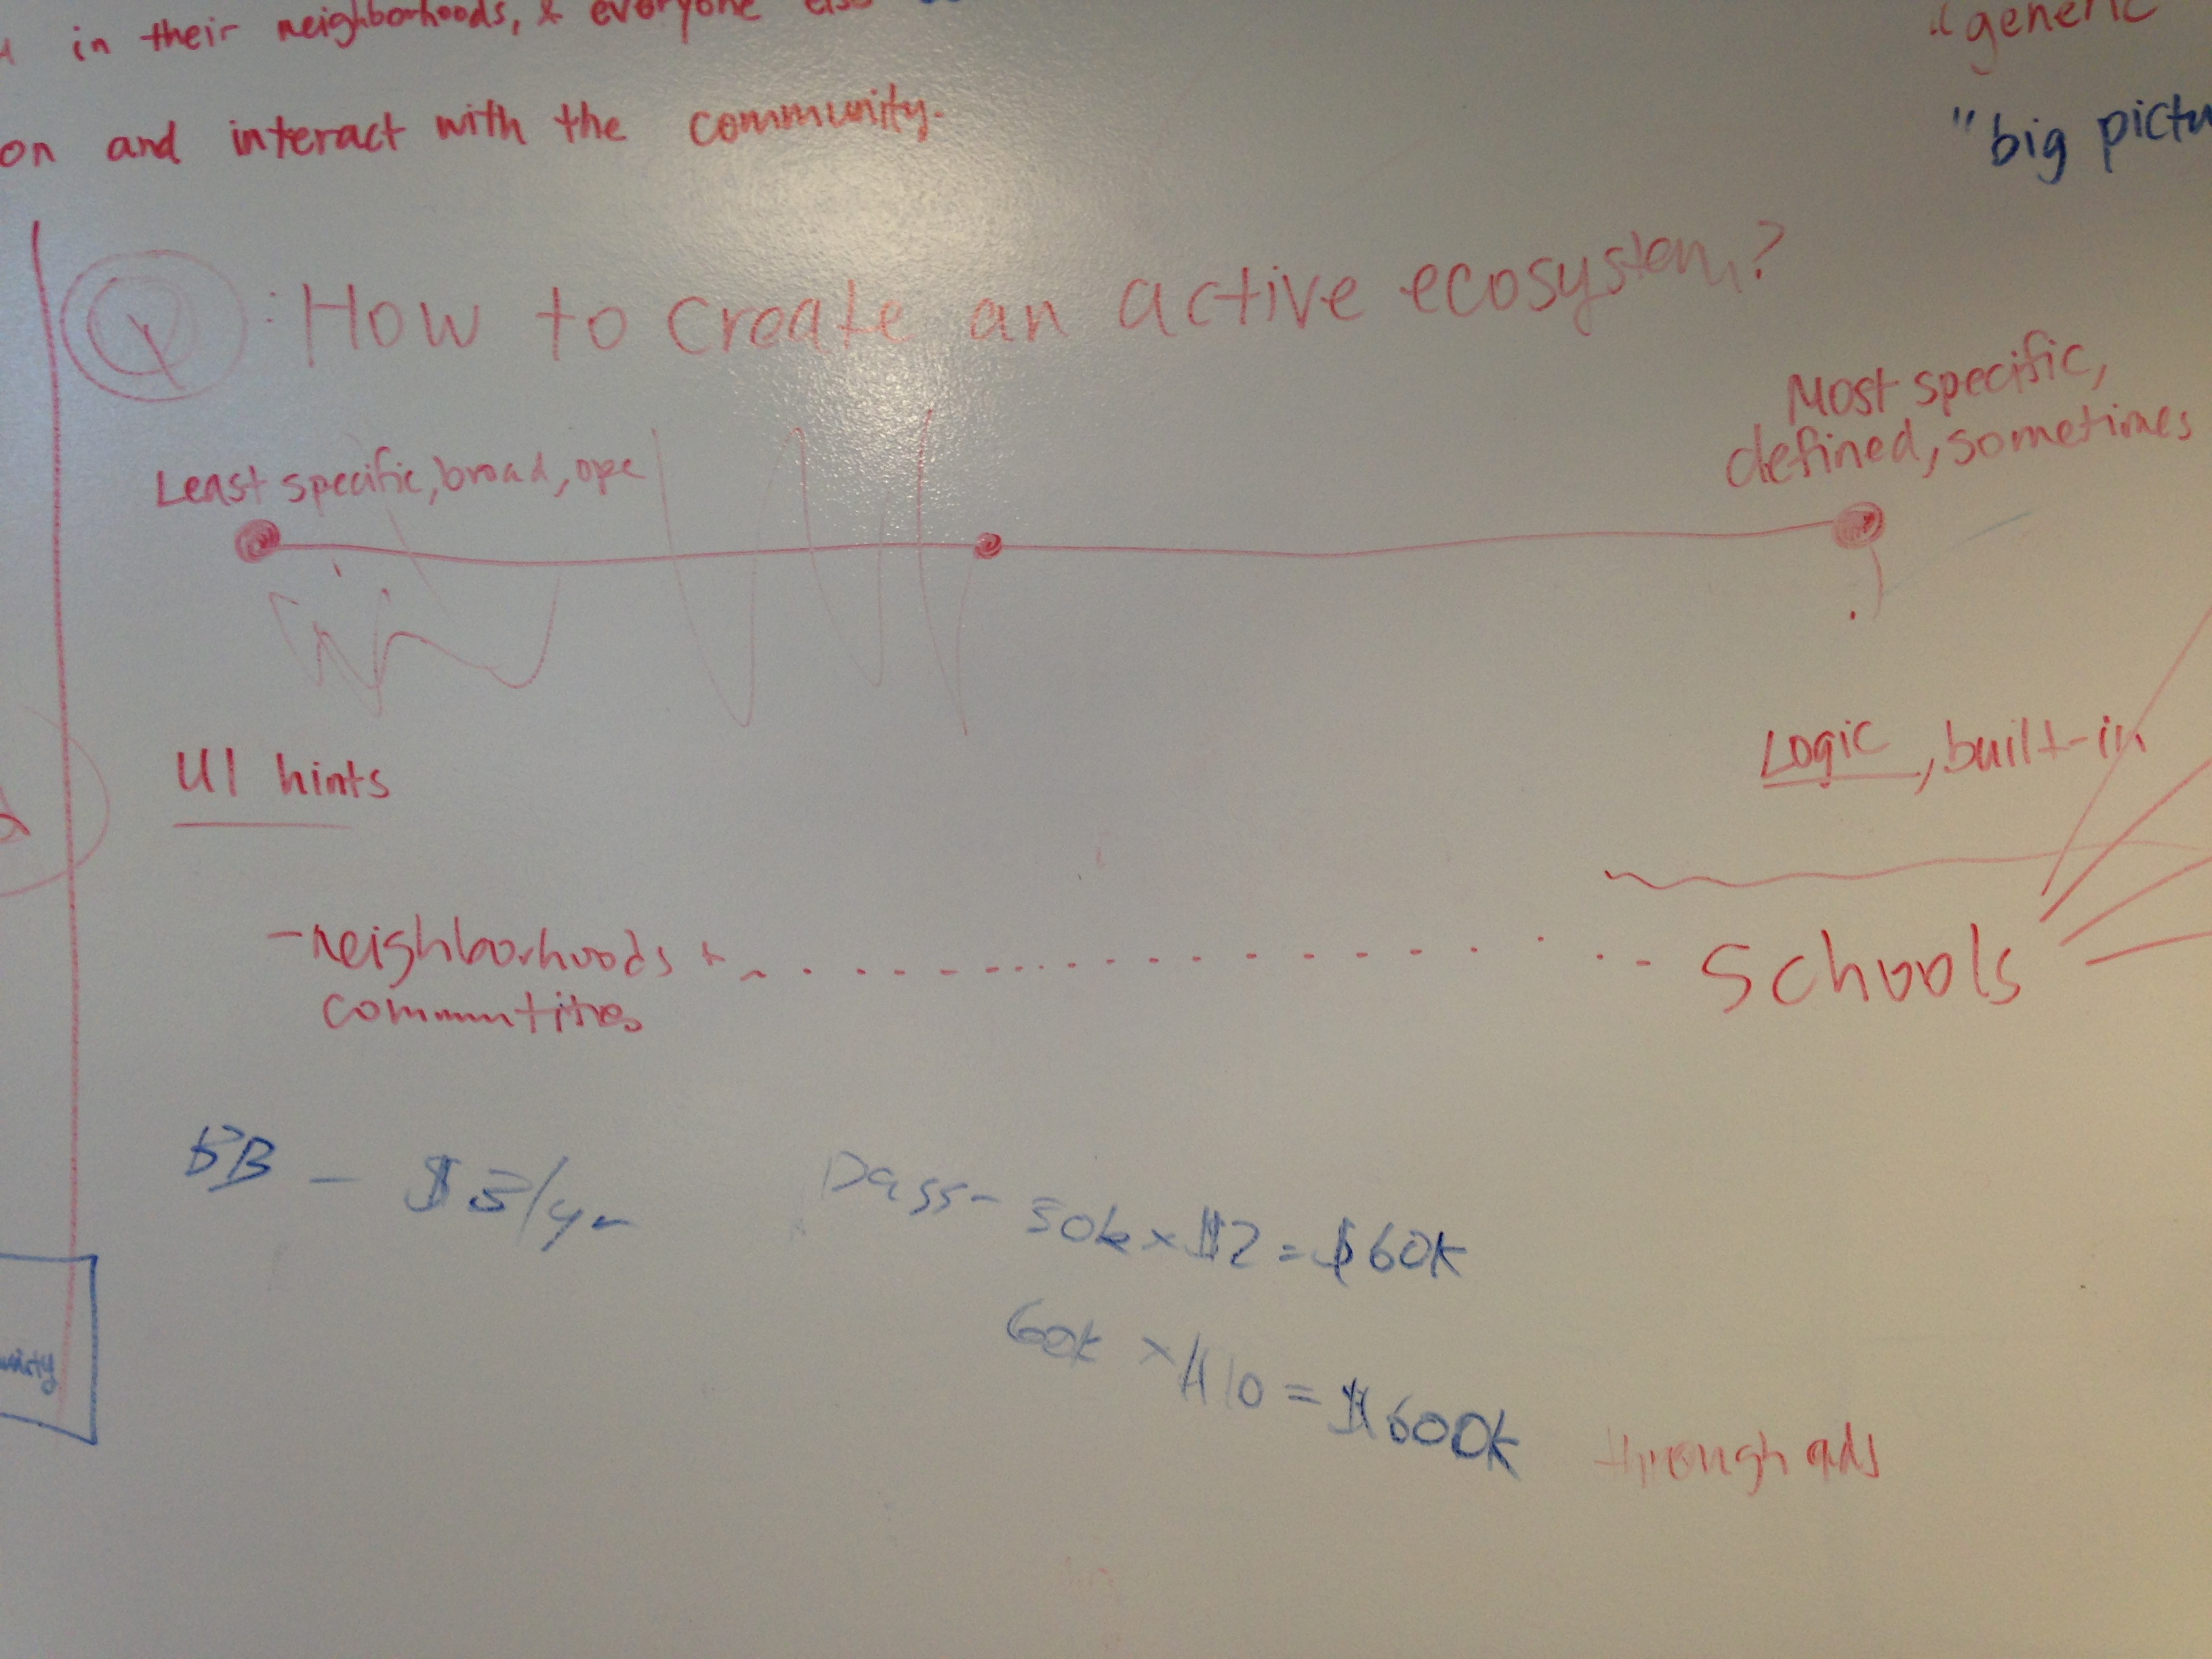 in their neighborhoods, & everyone
on and interact with the community.
"generic
"big pictu
Q: How to create an active ecosystem?
Most specific,
defined, sometimes
Least specific, broad, ope
UI hints
Logic, built-in
-neighborhoods +
communities
Schools
BB - $3/yr
Dass- 30k x $2 = $60k
60k x $10 = $600k
through ads